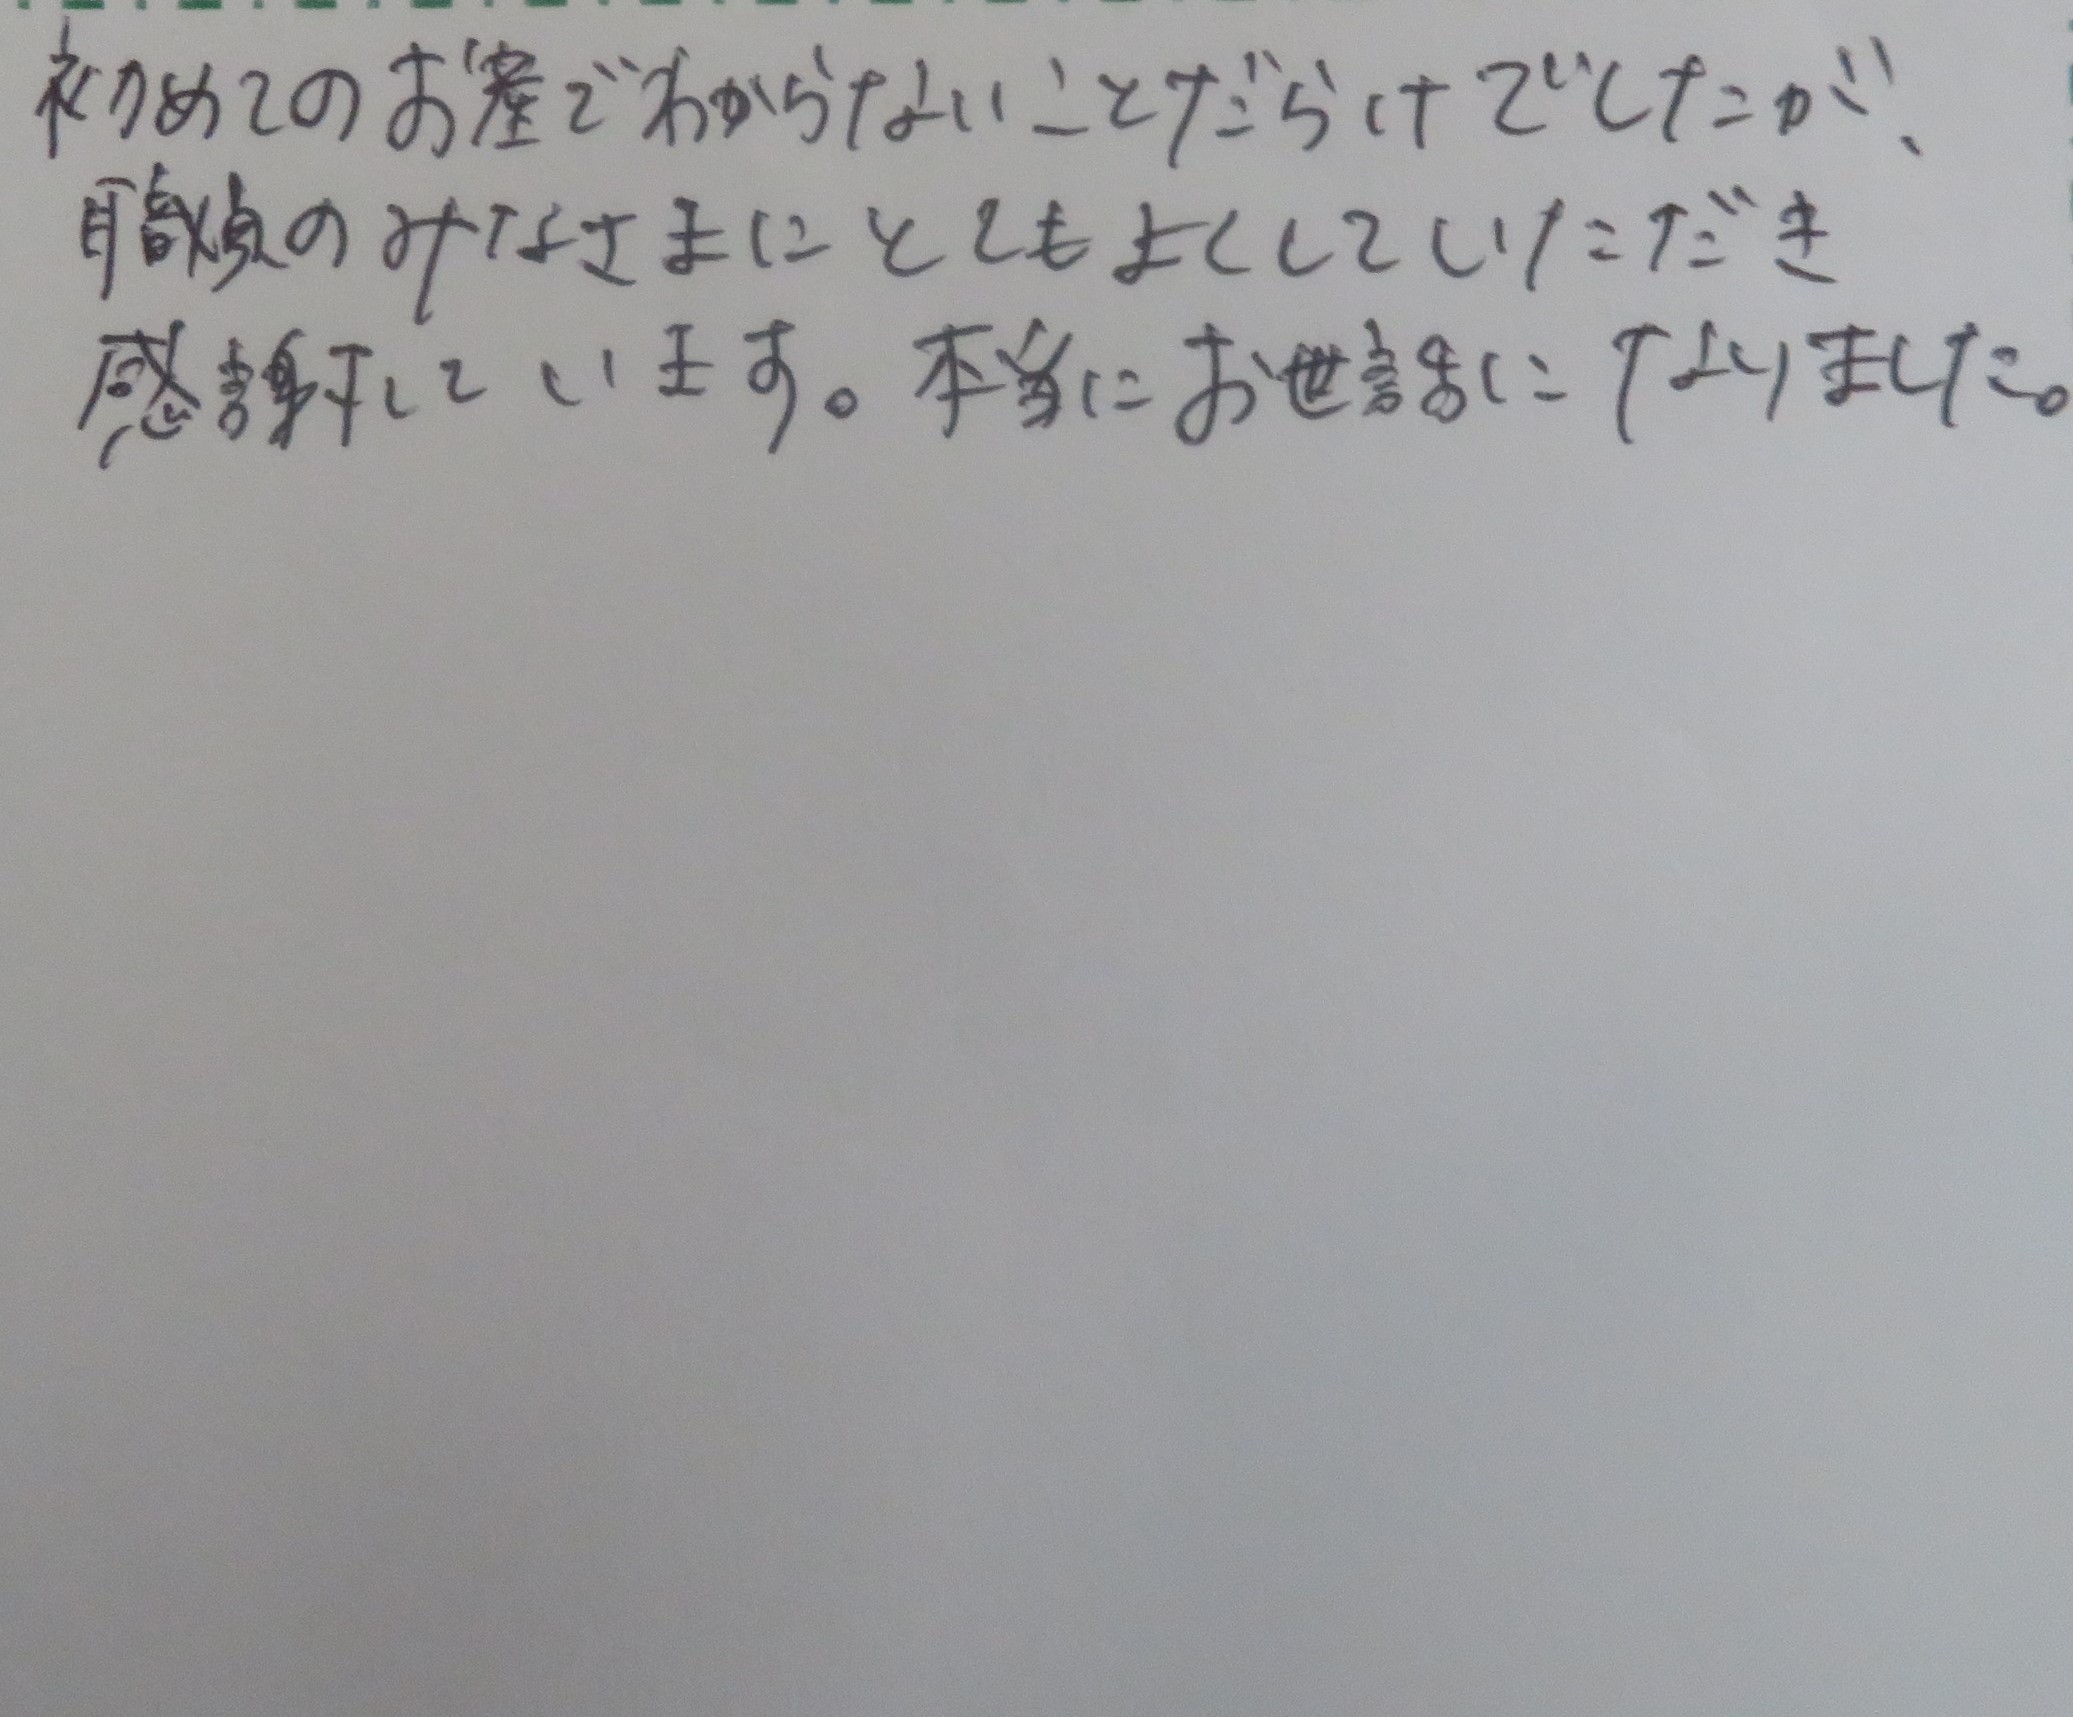 初めてのお産でわからないことだらけでしたが、
職員のみなさまにとてもよくしていただき
感謝しています。本当にお世話になりました。